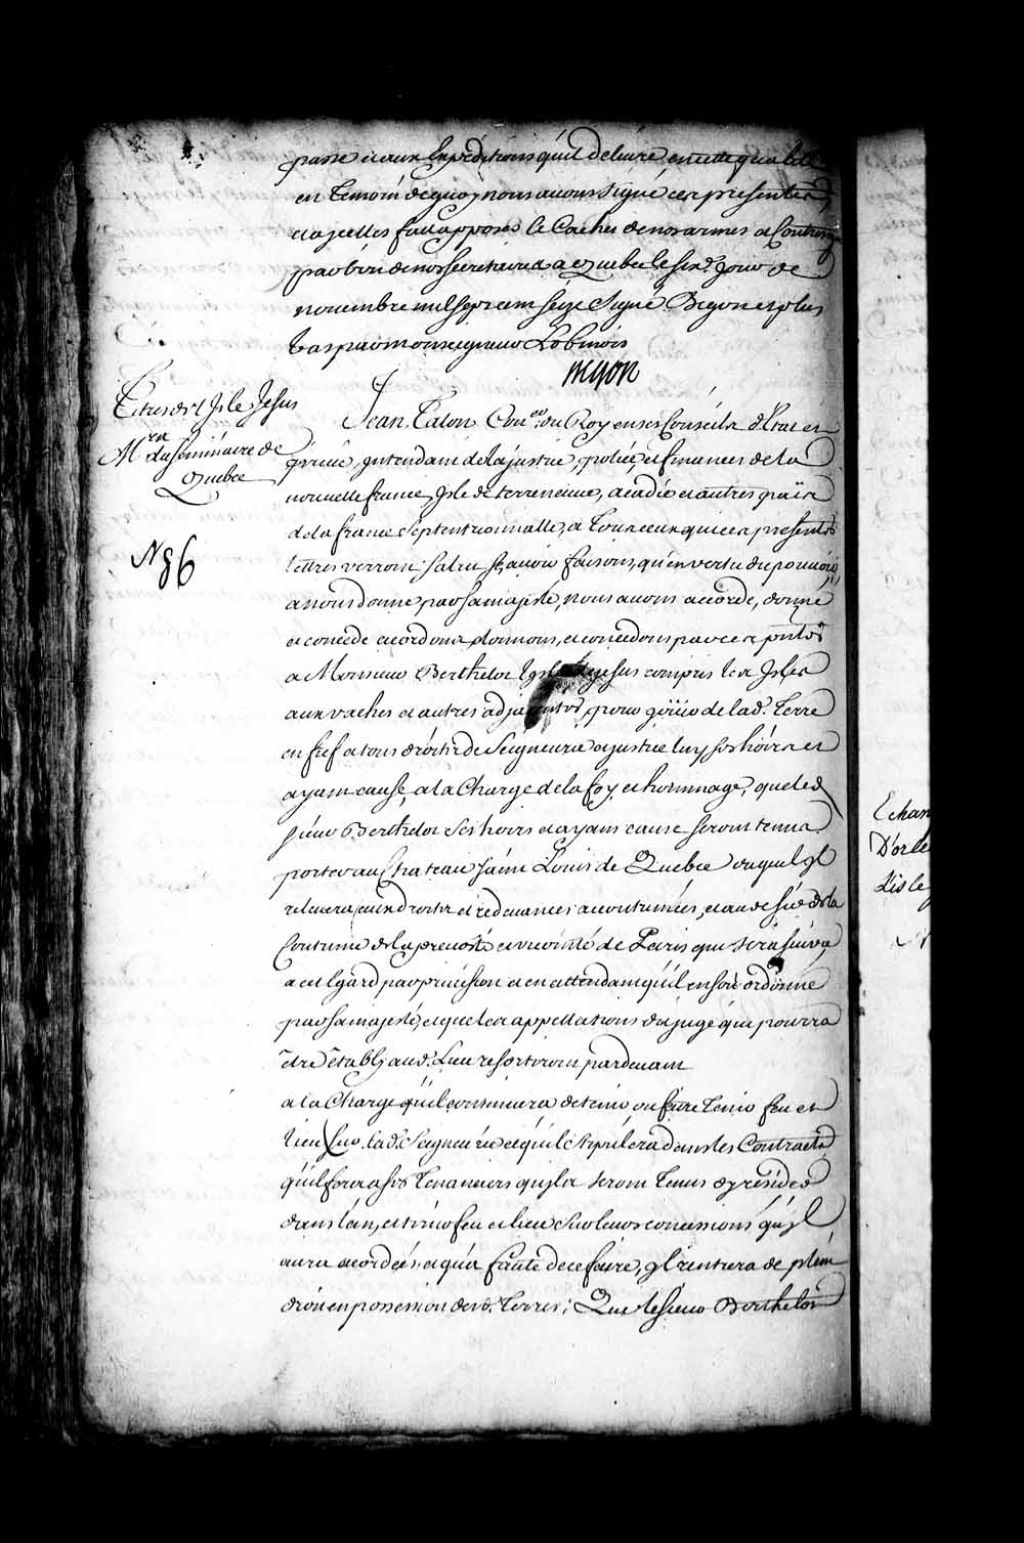 passé et aux Expeditions qu'il delivre en cette qualité
en Temoin de quoy nous avons signé ces presentes
et a jcelles fait apposer le Cachet de nos armes et Contresig
par l'un de nos secretaires a Quebec le six.e jour de
novembre mil sept cent séize Signé Begon et plus
bas par monseigneur Lobinois
Begon
Titres de l'Jsle Jesus
M.rs du Seminaire de
Quebec
N 86
Jean Talon Con.er du Roy en ses Conseils d'Etat et
privé, jntendant de la justice, police, et finances de la
nouvelle france, Jsle de terreneuve, acadie et autres païs
de la france Septentrionnalle, a Tous ceux qui ces presentes
lettres verront salut sçavoir faisons, qu'en vertu du pouvoir
a nous donné par sa majesté, nous avons accordé, donné
et concedé accordons donnons, et concedons par ces pntes
a Monsieur Berthelot l'jsle de jesus compris les Jsles
aux vaches et autres adjacentes, pour joüir de lad. Terre
en fief a tous droits de Seigneurie et justice luy ses hoirs et
ayant cause, a la Charge de la foy et hommage, que led
sieur Berthelot Ses hoirs et ayans cause seront tenus
porter au Chateau Saint Louis de Quebec duquel jl
relevera, aux droits et redevances accoutumées, et au desir de la
Coutume de la prevosté et vicomté de Paris qui sera suivie
a cet Egard par provision et en attendant qu'il en soit ordonné
par sa majesté, et que les appellations du juge qui pourra
être établj aud. Lieu resortiront pardevant
a la Charge qu'il continuera de tenir ou faire Tenir feu et
lieu Sur lad. Seigneurie et qu'il stipulera dans les Contracts
qu'il fera a ses Tenanciers qu'jls seront Tenus d'y resider
dans l'an, et tenir feu et lieu Sur leurs concessions qu'jl
aura accordées et qu'a faute de ce faire, jl rentrera de plein
droit en possession desd. Terres; Que le sieur Berthelot
Echan
D'orle
L'isle